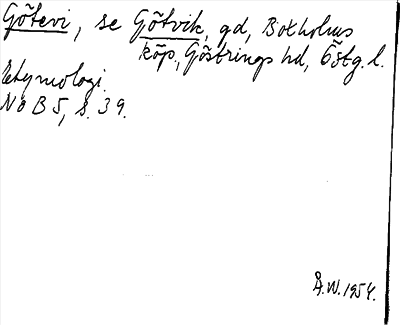 Götevi, se Götvik, gd, Botholms
köp, Göstrings hd, Östg. l.
Etymologi.
No B 5, s. 39.
Å.W. 1954.